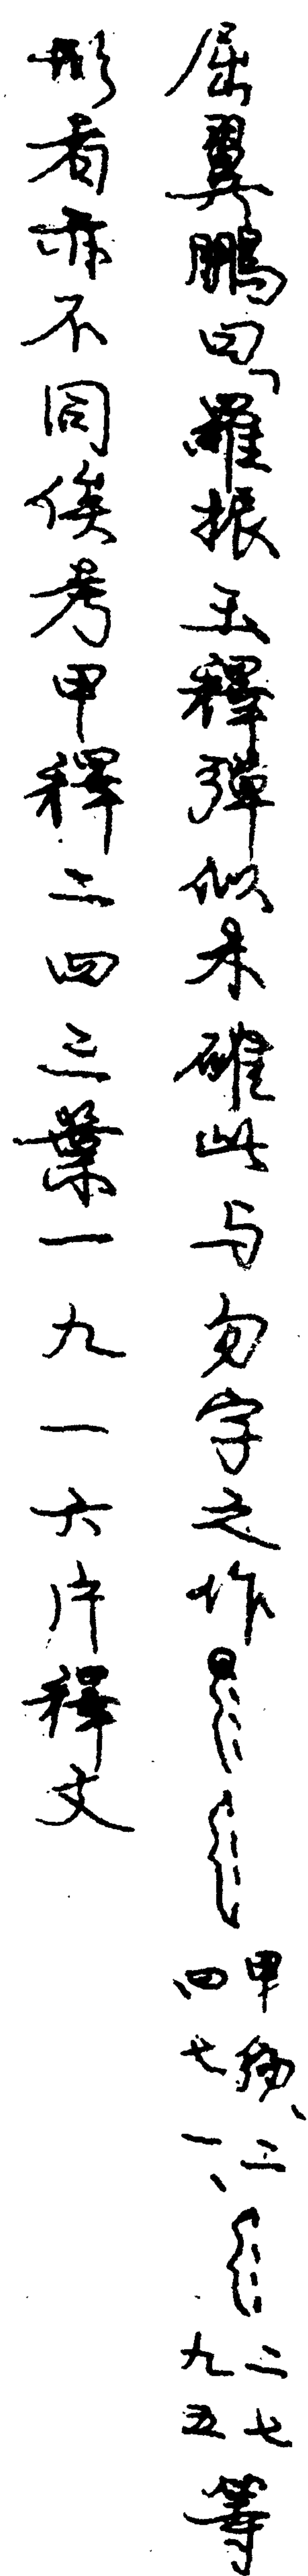 屈翼鵬曰「羅振玉釋彈似未確此与勿字之作甲編、二四七一、二七九五等
形者亦不同俟考甲釋二四三葉一九一六片釋文